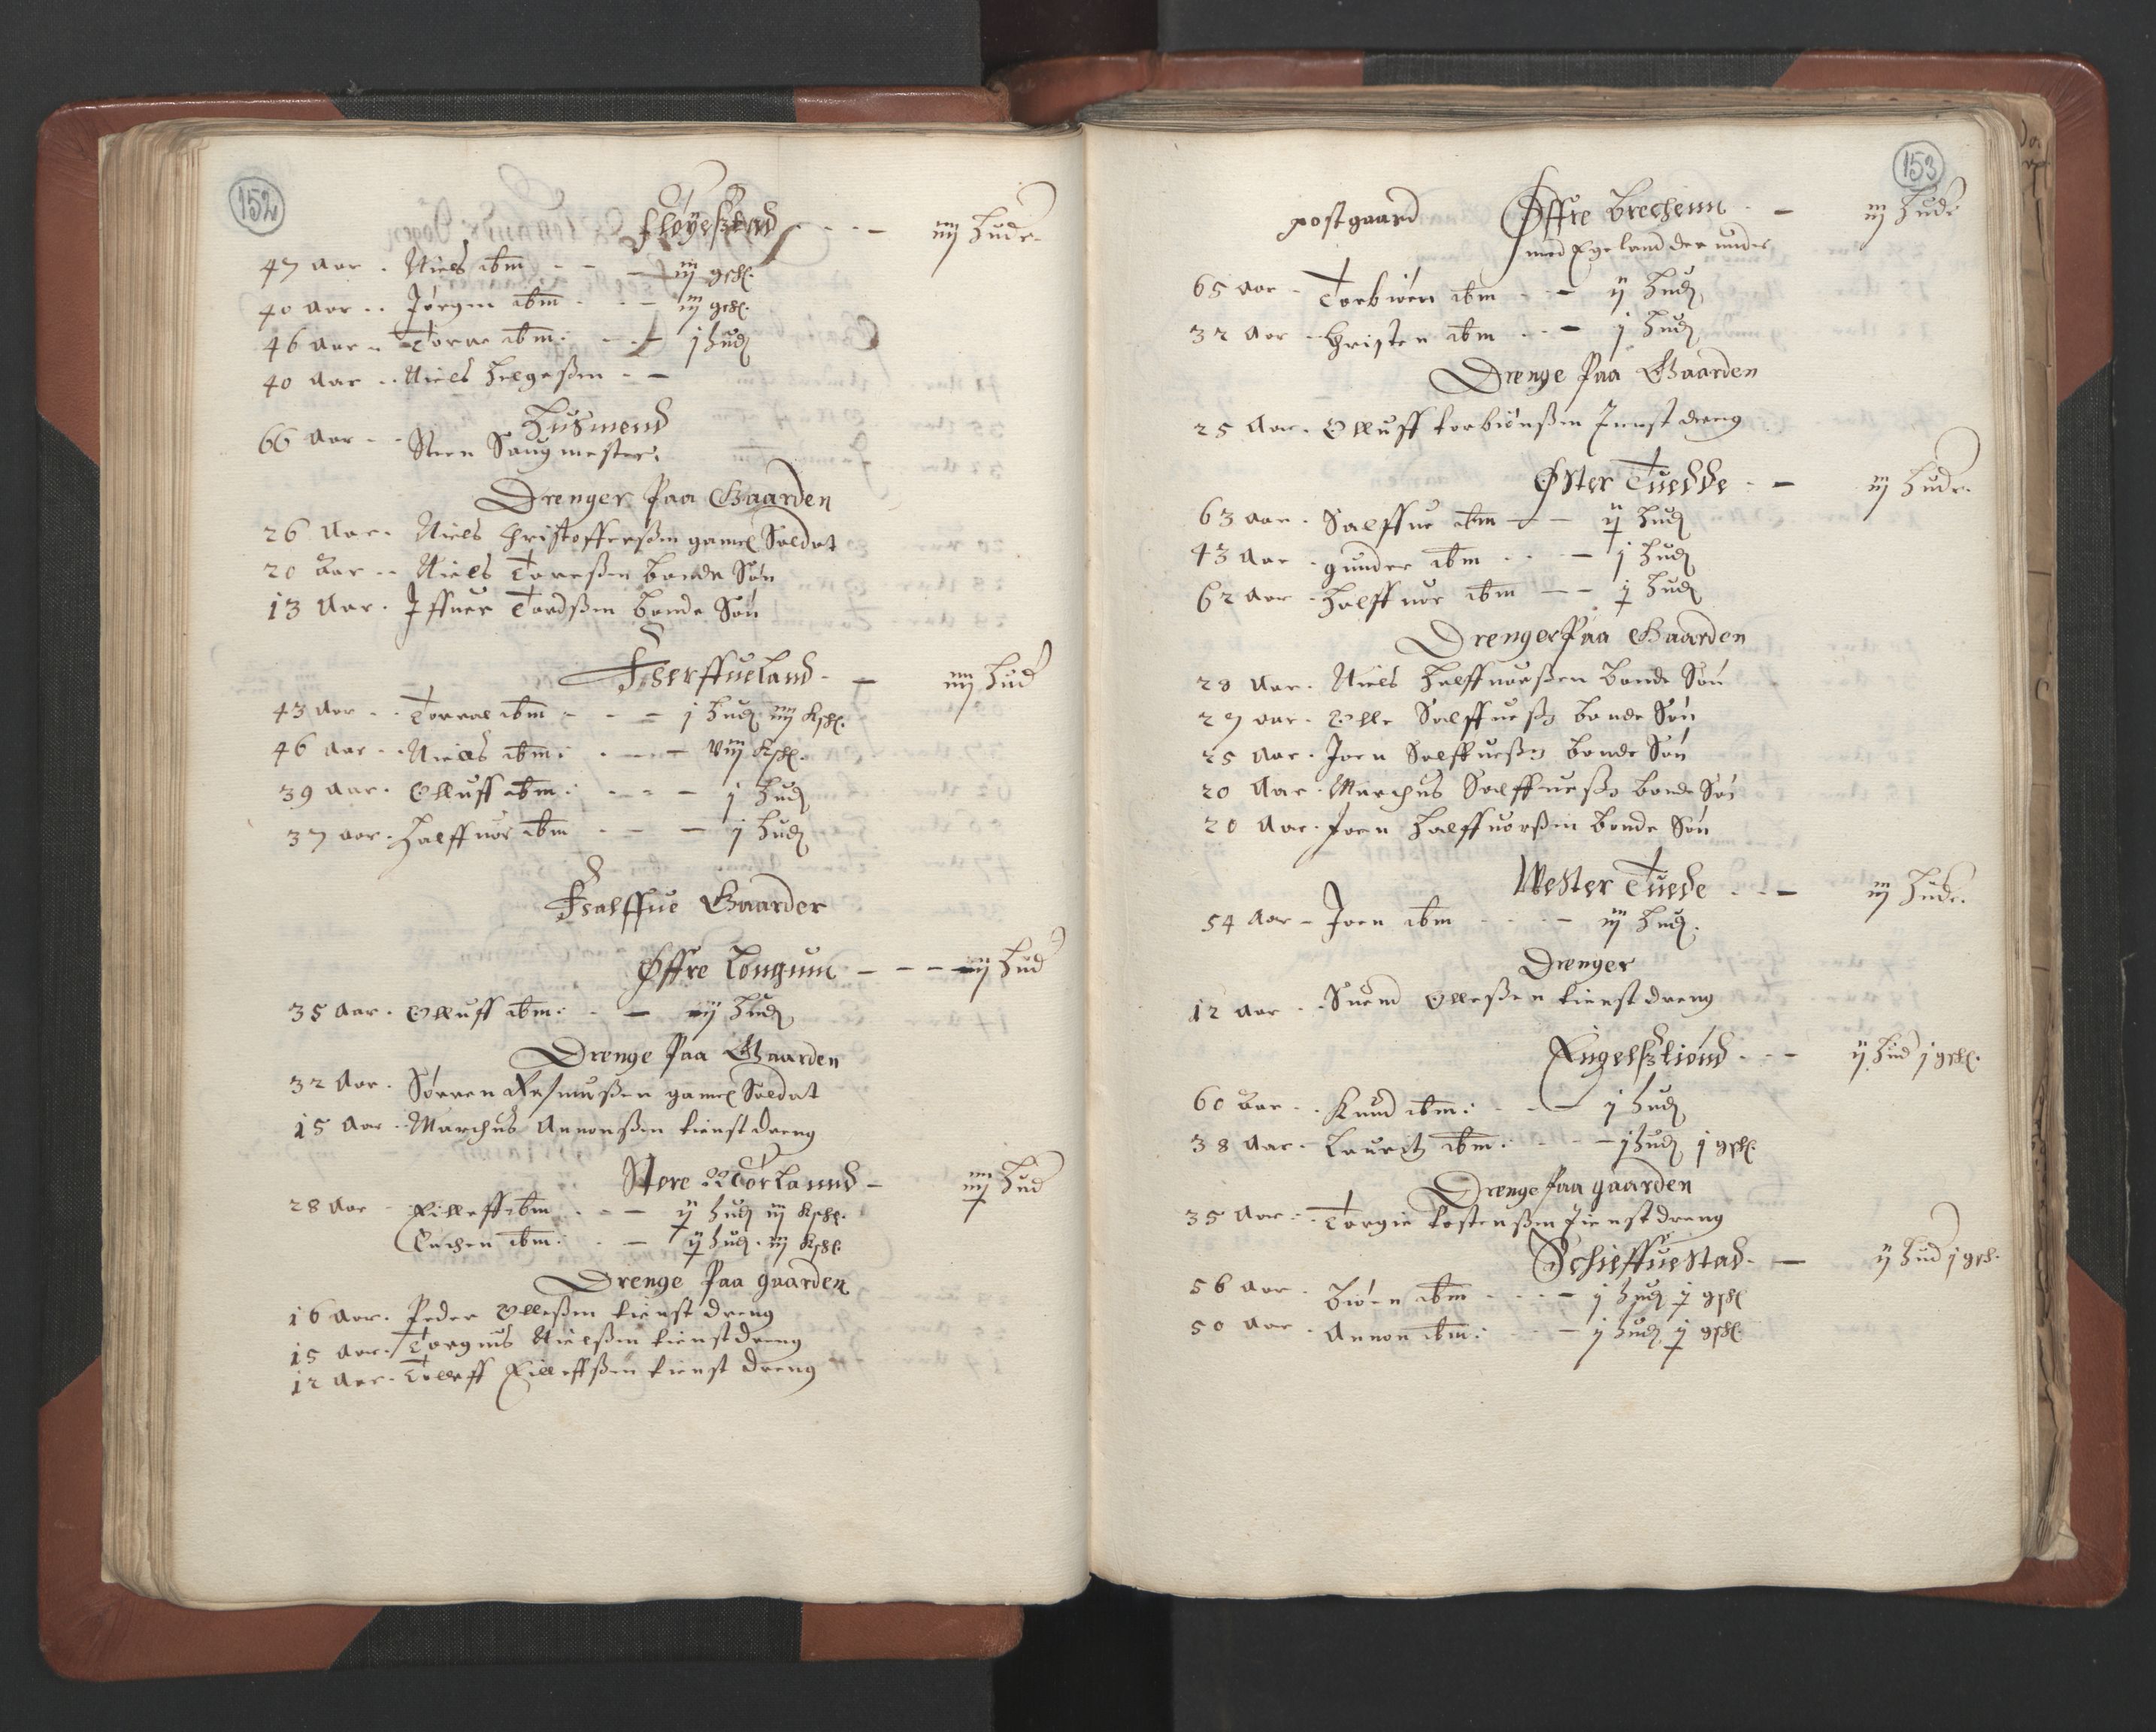 152
Fløyestad - - - iiij Huder
47 Aar . Niels ibm - - - iij gesl.
40 Aar .. Jørgen ibm - - - iij gesl.
46 Aar .. Torre ibm: - - - j Hud
40 Aar .. Niels Helgeßen - -
Husmend
66 Aar - - Steen Saugmester:
Drenger Paa Gaarden
26 Aar . Niels Christofferßen gamel Soldat
20 Aar .. Niels Toreßen bonde Søn
13 Aar . Iffuer Tordßen bonde Søn
Fierffueland - - iiij Hud
43 Aar . . Torral ibm - - - j Hud iiij Ksl.
46 Aar . . Niels ibm: . - - viij Ksl.
39 Aar . Olluff ibm: - - - j Hud
37 Aar . Halffuor ibm - - - j Hud
Halffue Gaarder
Øffre Longum - - - iij Hud
35 Aar . Olluff ibm: . - iij Hud
Drenge Paa Gaarden
32 Aar . Sørren Rasmußen gamel Soldat
15 Aar . Marchus Annonßen tienst dreng
Store Torland - iiij Hud
28 Aar - Eilleff ibm . - - ij Hud iij Ksl.
Enchen ibm: . - ij Hud . iij Ksl.
Drenge Paa gaarden
16 Aar . Peder Olleßen tienst dreng
15 Aar . Torgius Nielßen tienst dreng
12 Aar . Tolleff Eilleffßen tienst dreng
153
postgaard Øffre Brechenn - - iij Hude
med Egeland der under
65 Aar - Torbiørn ibm - - ij Hud
32 Aar - Christen ibm . - - j Hud
Drenge Paa Gaarden
25 Aar . Olluff torbiønßen Tienst dreng
Øster Tuede - - iij Huder
63 Aar . Salffue ibm - - ij Hud
43 Aar . gunder ibm . . - j Hud
62 Aar . Halffuor ibm - - j Hud
Drenger Paa Gaarden
28 Aar . Niels Halffuorßen bonde Søn
27 Aar . Olle Salffueßø bonde Søn
25 Aar . Joen Salffueßø bonde Søn
20 Aar . Marchus Salffueßø bonde Søn
20 Aar . Joen Halffuorßen bonde Søn
Wester Tuede . - - iij Huder.
54 Aar - Joen ibm . . . - iij Hud.
Drenger
12 Aar . . Suend Olleßen tienst dreng
Engelßtiønd . - - ij Hud j gesl.
60 Aar - . Knud ibm: . - - j Hud
38 Aar . Lauretz ibm: . - - j Hud j gesl.
Drenge Paa gaarden
35 Aar . . Torgie tostenßen tienst dreng
Schieffuestad . - ij Hud j gesl.
56 Aar . Biøen ibm . . . - j Hud j gesl
50 Aar . Annon ibm: . . - j Hud j gesl.